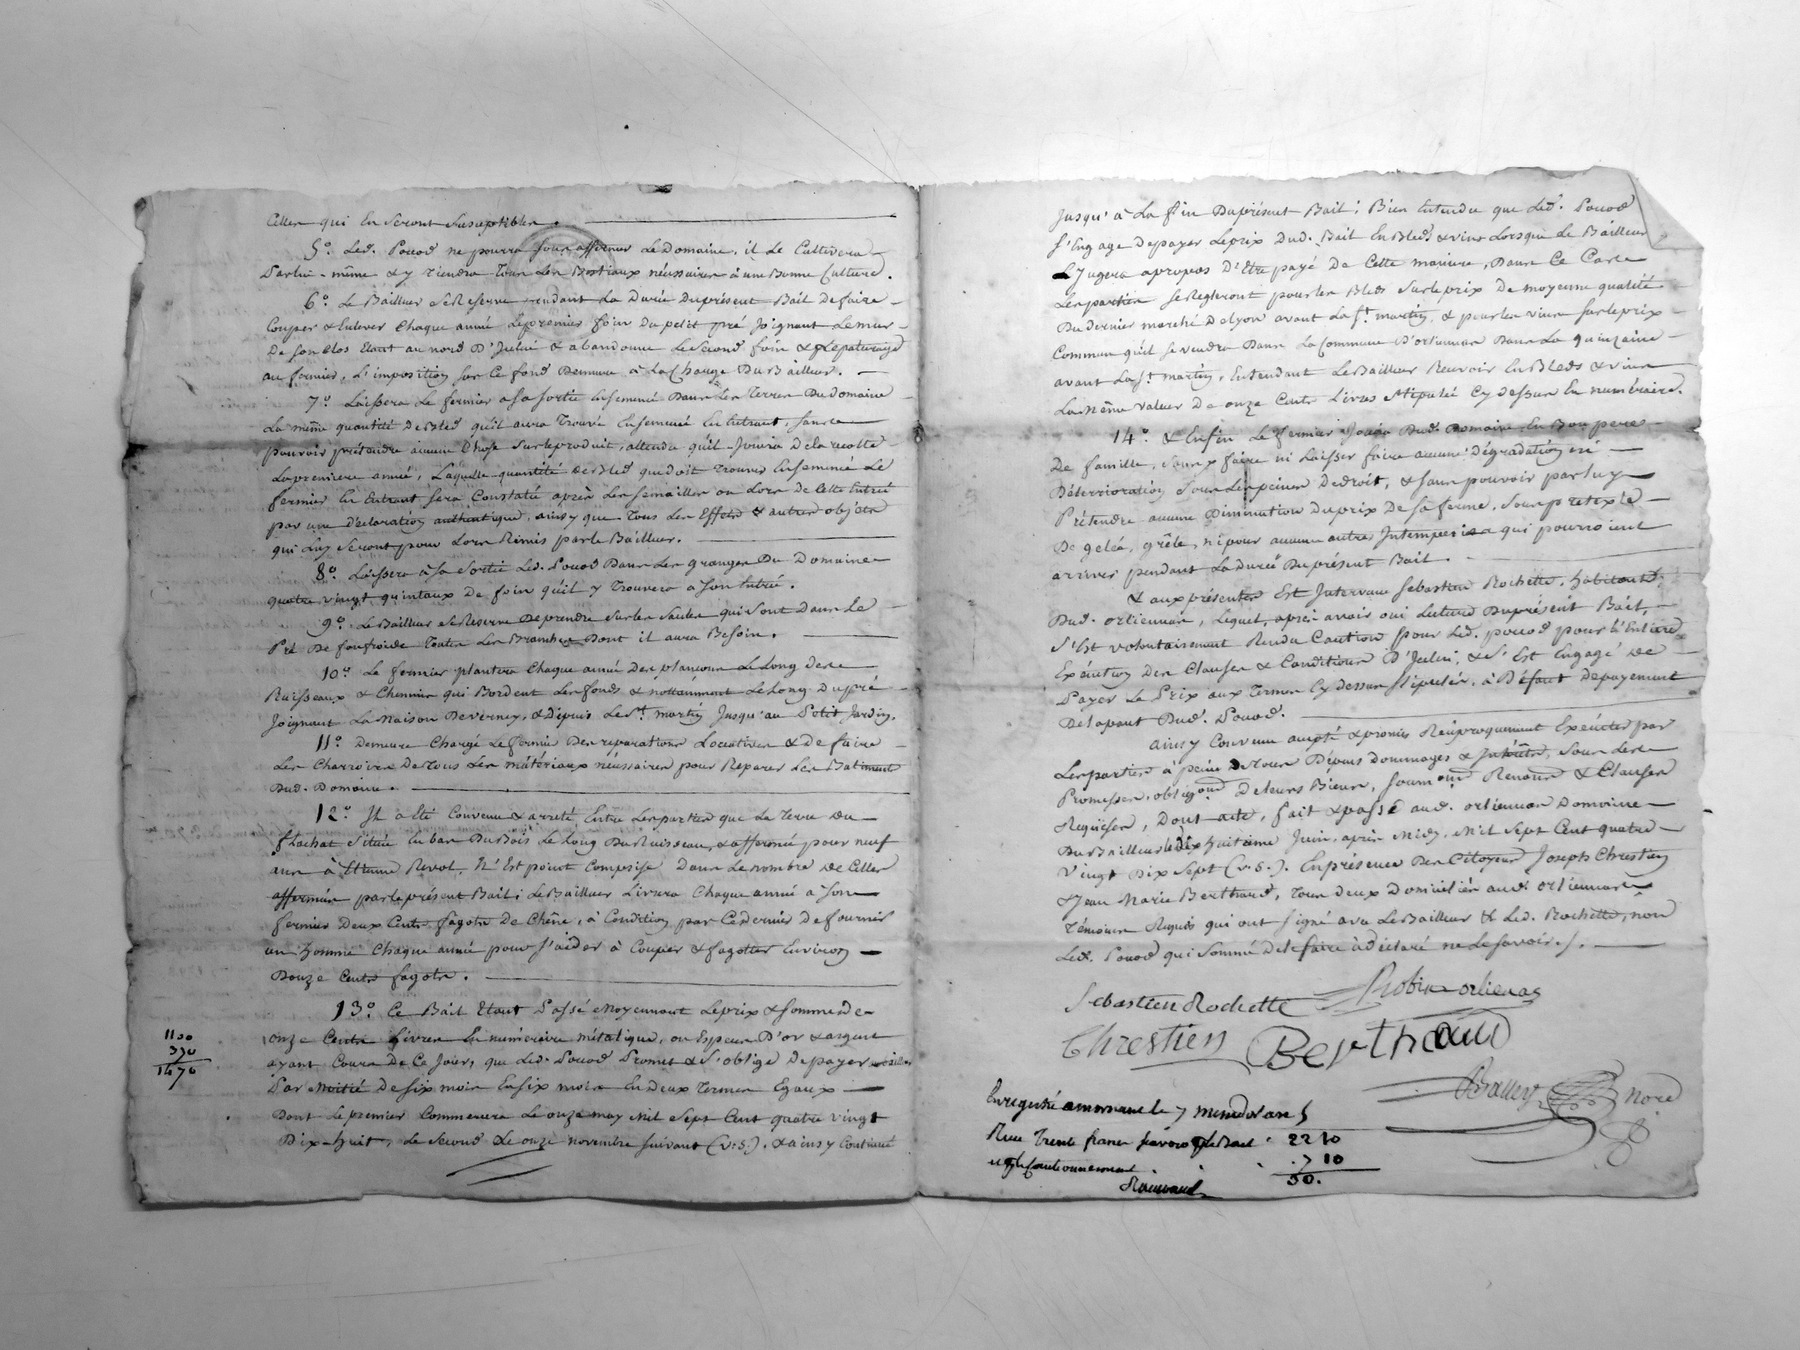 Celles qui En Seront Susceptibles.
5.º Led. Pouod ne pourra Sous affermer Le Domaine, il Le Cultivera
Par lui-même & y Tiendra Tous Les Bestiaux néssaires à une Bonne Culture.
6.º Le Bailleur Se Reserve pendant La Durée Duprésent Bail De faire
Couper & Enlever Chaque année Lepremier foin Du petit pré Joignant Lemur
De Son Clos Etant au nord D'Icelui & abandonne Le Second foin & Lepaturage
au fermier, L'imposition Sur Ce fond Demeure à La Charge Du Bailleur.
7.º Laissera Le fermier a Sa Sortie Ensemencé Dans Les Terres Du Domaine
La même quantité De Bled qu'il aura Trouvé Ensemencé En Entrant, Sans
pouvoir prétendre aucune Chose Surleproduit, attendu qu'il Jouira De la recolte
Lapremiere année, Laquelle quantité de Bled que doit Trouver Ensemencé Le
fermier En Entrant Sera Constatée après Les Semailles ou Lors De Cette Entrée
par une Déclaration authentique, ainsy que Tous Les Effets & autres objets
qui Luy Seront pour Lors Remis par le Bailleur.
8.º Laissera à Sa Sortie Led. Pouod Dans Les granges Du Domaine
quatre vingt quintaux De foin qu'il y Trouvera a Son Entrée.
9.º Le Bailleur Se Reserve Deprendre Sur les Saules qui Sont Dans Le
Pré De fonfroide Toutes Les Branches Dont il aura Besoin.
10.º Le fermier plantera Chaque année Des plançons Le Long des
Ruisseaux & Chemins qui Bordent Les fonds & nottamment Le Long Dupré
Joignant La Maison De verney, & Depuis Le St. martin Jusqu'au Petit Jardin.
11.º Demeure Chargé Le fermier Des reparations Locatives & de faire
Les Charrois De Tous Les matériaux néssaires pour Reparer Les Batiments
Dud. Domaine.
12.º Il a Eté Convenu & arreté Entre Les parties que La Terre du
flachat Située En bas Du Bois Le Long Du Ruisseau, & affermée pour neuf
ans à Etienne Revol, N'Est point Comprise Dans Le nombre de Celles
affermées par le présent Bail; Le Bailleur Livrera Chaque année a Son
fermier Deux Cents fagots De Chêne, à Condition par Ce dernier De fournir
un homme Chaque année pour l'aider à Couper & fagotter Environ
Douze Cents fagots.
13.º Ce Bail Etant Passé Moyennant Leprix & Somme De
onze Cents Livres En numéraire métalique, ou Espèces D'or & argent
ayant Cours De Ce Jour, que Led. Pouod Promet & S'oblige De payer au Bailleur
Par Moitié De Six mois En Six mois En deux Termes Egaux
Dont Le premier Commencera Le onze may Mil Sept Cent quatre vingt
Dix-huit, Le Second Le onze novembre Suivant (v. S.). & ainsy Continuer
1100
370
1470
Jusqu'à La fin Duprésent Bail; Bien Entendu que Led. Pouod
S'Engage Depayer Leprix Dud. Bail En Bled & vins Lorsque Le Bailleur
L'Jugera apropos D'Etre payé De Cette maniere, Dans Ce Cas
Les parties Se Regleront pour les Bleds Sur le prix De moyenne qualité
Du dernier marché De lyon avant La St. martin, & pour les vins Sur le prix
Commun qu'il Se vendra Dans La Commune D'orliennas Dans La quinzaine
avant La St. martin, Entendant Le Bailleur Recevoir En Bleds & vins
La Même valeur De onze Cents Livres Stipulée Cy dessus En numéraire.
14.º & Enfin Le fermier Jouira Dud. Domaine En Bon pere
De famille, Sans y faire ni Laisser faire aucune Dégradation ni
Déterrioration Sous Les peines De droit, & Sans pouvoir par Luy
Prétendre aucune Diminution Du prix De Sa ferme, Sous pretexte
De gelée, grêle, ni pour aucunes autres Intemperies qui pourroient
arriver pendant La Durée Du présent Bail.
& aux présentes Est Intervenu Sebastien Rochette, habitant
Dud. orliennas, Lequel, après avoir oui Lecture Du présent Bail,
S'Est volontairement Rendu Caution pour Led. pouod pour l'Entiere
Exécution Des Clauses & Conditions D'Icelui, & S'Est Engagé de
Payer Le Prix aux Termes Cy dessus Stipulés, à Défaut Depayement
De la part Dud. Pouod.
ainsy Convenu accepté & promis Réciproquement Exécuter par
Les parties à peine De Tous Dépens Dommages & Intérêts, Sous Les
Promesses, obligõns De leurs Biens, Soumõns Renõns & Clauses
Requises, Dont acte, fait & passé aud. orliennas Domaine
Du Bailleur le Dix huitieme Juin, après Midy, Mil Sept Cent quatre
vingt Dix Sept (v. S.). En présence Des Citoyens Joseph Chrestien
& Jean Marie Berthaud, Tous deux Domiciliés aud. orliennas
Témoins Requis qui ont Signé avec Le Bailleur & Led. Rochette, non
Led. Pouod qui Sommé De le faire à déclaré ne Le Savoir./.
Sebastien Rochette Robin orlienas
Chrestien Berthaud
Balley Nore
Enregistré a mornant le 7 messidor an 5
Reçu Trente francs savoir p. le Bail 22 10
et p. le Cautionnement 7 10
30.